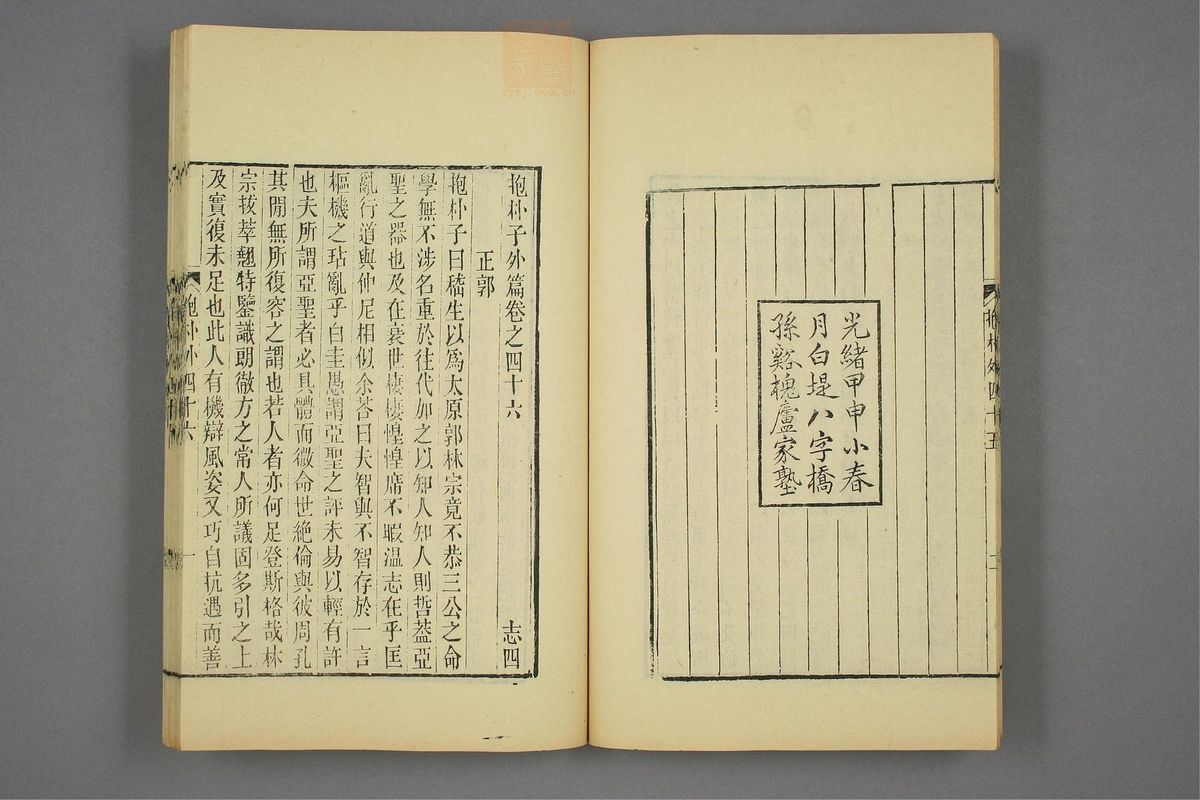 抱朴外四十五
二
光緒甲申小春
月白堤八字橋
孫谿槐廬家塾
抱朴子外篇卷之四十六
志四
正郭
抱朴子曰嵇生以爲太原郭林宗竟不恭三公之命
學無不涉名重於往代加之以知人知人則哲葢亞
聖之器也及在衰世棲棲惶惶席不暇溫志在乎匡
亂行道與仲尼相似余荅曰夫智與不智存於一言
樞機之玷亂乎白圭愚謂亞聖之評未易以輕有許
也夫所謂亞聖者必具體而微命世絕倫與彼周孔
其閒無所復容之謂也若人者亦何足登斯格哉林
宗拔萃翹特鑒識朗徹方之常人所議固多引之上
及實復未足也此人有機辯風姿又巧自抗遇而善
抱朴外四十六
一
zygj.ccc.cn